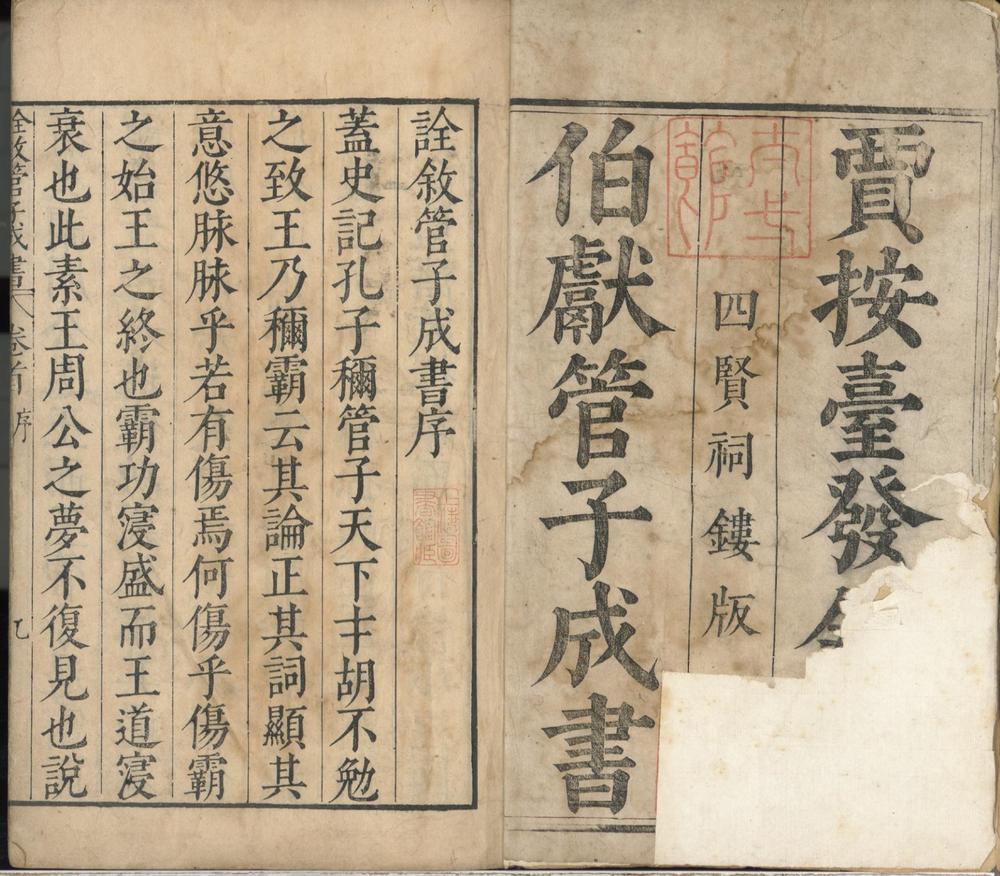 賈按臺發
四賢祠鏤版
伯獻管子成書
詮敘管子成書序
蓋史記孔子穪管子天下才胡不勉
之致王乃穪霸云其論正其詞顯其
意悠脉脉乎若有傷焉何傷乎傷霸
之始王之終也霸功寖盛而王道寖
衰也此素王周公之夢不復見也說
詮敘管子成書 卷首 序